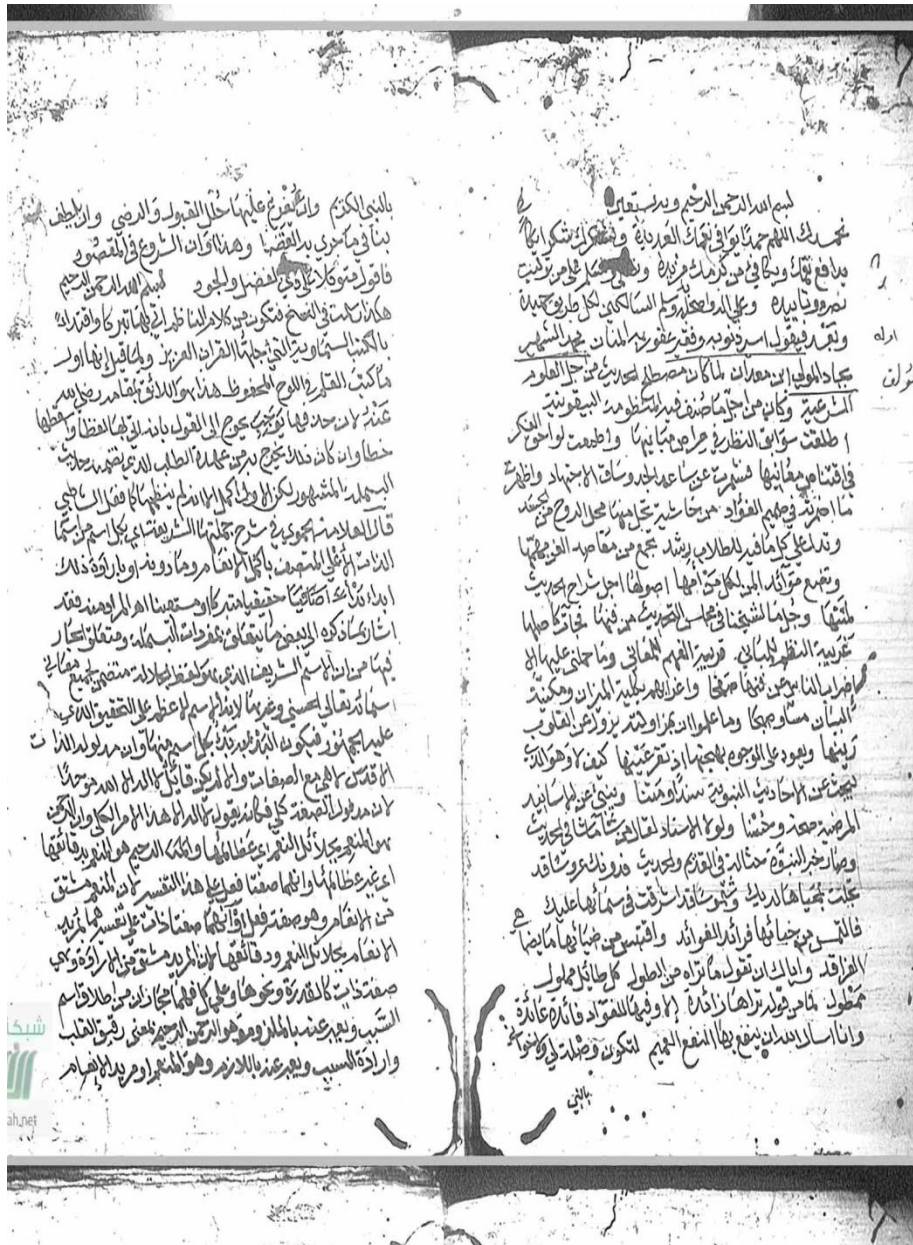 بسم الله الرحمن الرحيم وبه نستعين
نحمدك اللهم حمدا يوافي نعمك العديدة ونشكرك شكرا
يدافع نقمك ويكافئ من كرمك مزيده ونصلي ونسلم على من توليت
نصره وتاييده وعلى اله وصحابه وسلم السالكين لكل طريق حميدة
وبعد فيقول اسير ذنوبه وفقير عفو ربه المنان محمد الشهير
بجاد المولى ابن معدان لما كان مصطلح الحديث من اجل العلوم
الشرعية وكان من اجل ما صنف فيه المنظومة البيقونية
اطلقت سوابق النظر في مراض مبانيها واطمعت لواحق الفكر
في اقتناص معانيها فشمرت عن ساعد الجد وساق الاجتهاد واظهرت
ما اضمرته في صميم الفؤاد من حاشية تحل منها محل الروح من الجسد
وتدل على كل ما فيه للطلاب رشد تجمع من مقاصد الفن مهمها
وتضع موائد البر لكل من امها اصولها اجل شراح الحديث
لمتنها وجل ما لشيخنا في مجالس التحديث من فنها فجائز كاصلها
غريبة النظم للمباني قريبة الفهم للمعاني وما حملني عليها الا
اضراب الناس عن فنها صفحا واعراضهم
وما علموا ان
زينها ويعود على الوجوه بهجتها اذ كيف لا وهو الذي
يبحث عن الاحاديث النبوية سندا ومتنا وينبئ عن الاسانيد
المرضية صحة وحسنا ولولا الاسناد لقال من شاء ما شاء في الحديث
وصار خبر النبوة في القديم والحديث فدونك عروسا قد
تجلت بمحياها لديك وشموسا قد اشرقت في سمائها عليك
فالتمس من خبائها فرائد الفوائد واقتبس من ضيائها ما يضاهي
الفراقد واياك ان تقول ما تراه من الطول كل طائل مملول
ما من قولة تراها زائدة الا وفيها للفؤاد فائدة عائدة
وانا اسأل الله ان ينفع بها النفع العميم لتكون وصلة لي ولاخواني
بالنبي
اوله
بالنبي الكريم وان يفرغ عليها حلل القبول والرضى وان يلطف
بنا في ما جرى به القضا وهذا اوان الشروع في المقصود
فاقول متوكلا على ذي الفضل والجود بسم الله الرحمن الرحيم
هكذا ثبت في النسخ فتكون من كلام الناظم اتى بها تبركا واقتداء
بالكتب السماوية التي من جملتها القران العزيز ولما قيل انها اول
ما كتب القلم في اللوح المحفوظ هذا هو اللائق بمقامه رضي الله
عنه لان حذفها يحوج الى القول بانه اتى بها لفظا واسقطها
خطا وان كان ذلك يخرج به من عهدة الطلب الذي تضمنه حديث
البسملة المشهور لكن الاولى لم ينظمها كما فعل الشاطبي
قال العلامة الحموي في شرح جملتها الشريفة اي بكل اسم من اسماء
الذات الاعلى المتصف بكمال الانعام وما دونه او بارادة ذلك
ابتدئ ابتداء اضافيا حقيقيا متبركا ومستعينا اهـ المراد منه فقد
اشار بما ذكره الى بعض ما يتعلق بمفردات البسملة ومتعلق الجار
فيها من ان الاسم الشريف الذي هو لفظ الجلالة متضمن لجميع معاني
اسمائه تعالى الحسنى وغيرها لانه الاسم الاعظم على التحقيق الذي
عليه الجمهور فيكون البدء به بدءا بكل اسم منها وان مدلوله الذات
الاقدس لا هي مع الصفات والا لم يكن قائل لا اله الا الله موحدا
لان مدلول الصفة كلي فكانه يقول لا اله الا هذا الامر الكلي وان الرحمن
هو المنعم بجلائل النعم اي عظائمها وان الرحيم هو المنعم بدقائقها
اي غير عظائمها وانهما صفتا فعل على هذا التفسير لان المنعم مشتق
من الانعام وهو صفة فعل وانهما صفتا ذات على تفسيرهما بمريد
الانعام بجلائل النعم ودقائقها لان المريد مشتق من الارادة وهي
صفة ذات كالقدرة ونحوها وعلى كل فهما مجازان من اطلاق اسم
السبب ويعبر عنه بالملزوم وهو الرحمن الرحيم بمعنى رقيق القلب
وارادة المسبب ويعبر عنه باللازم وهو المنعم او مريد الانعام
ah.net